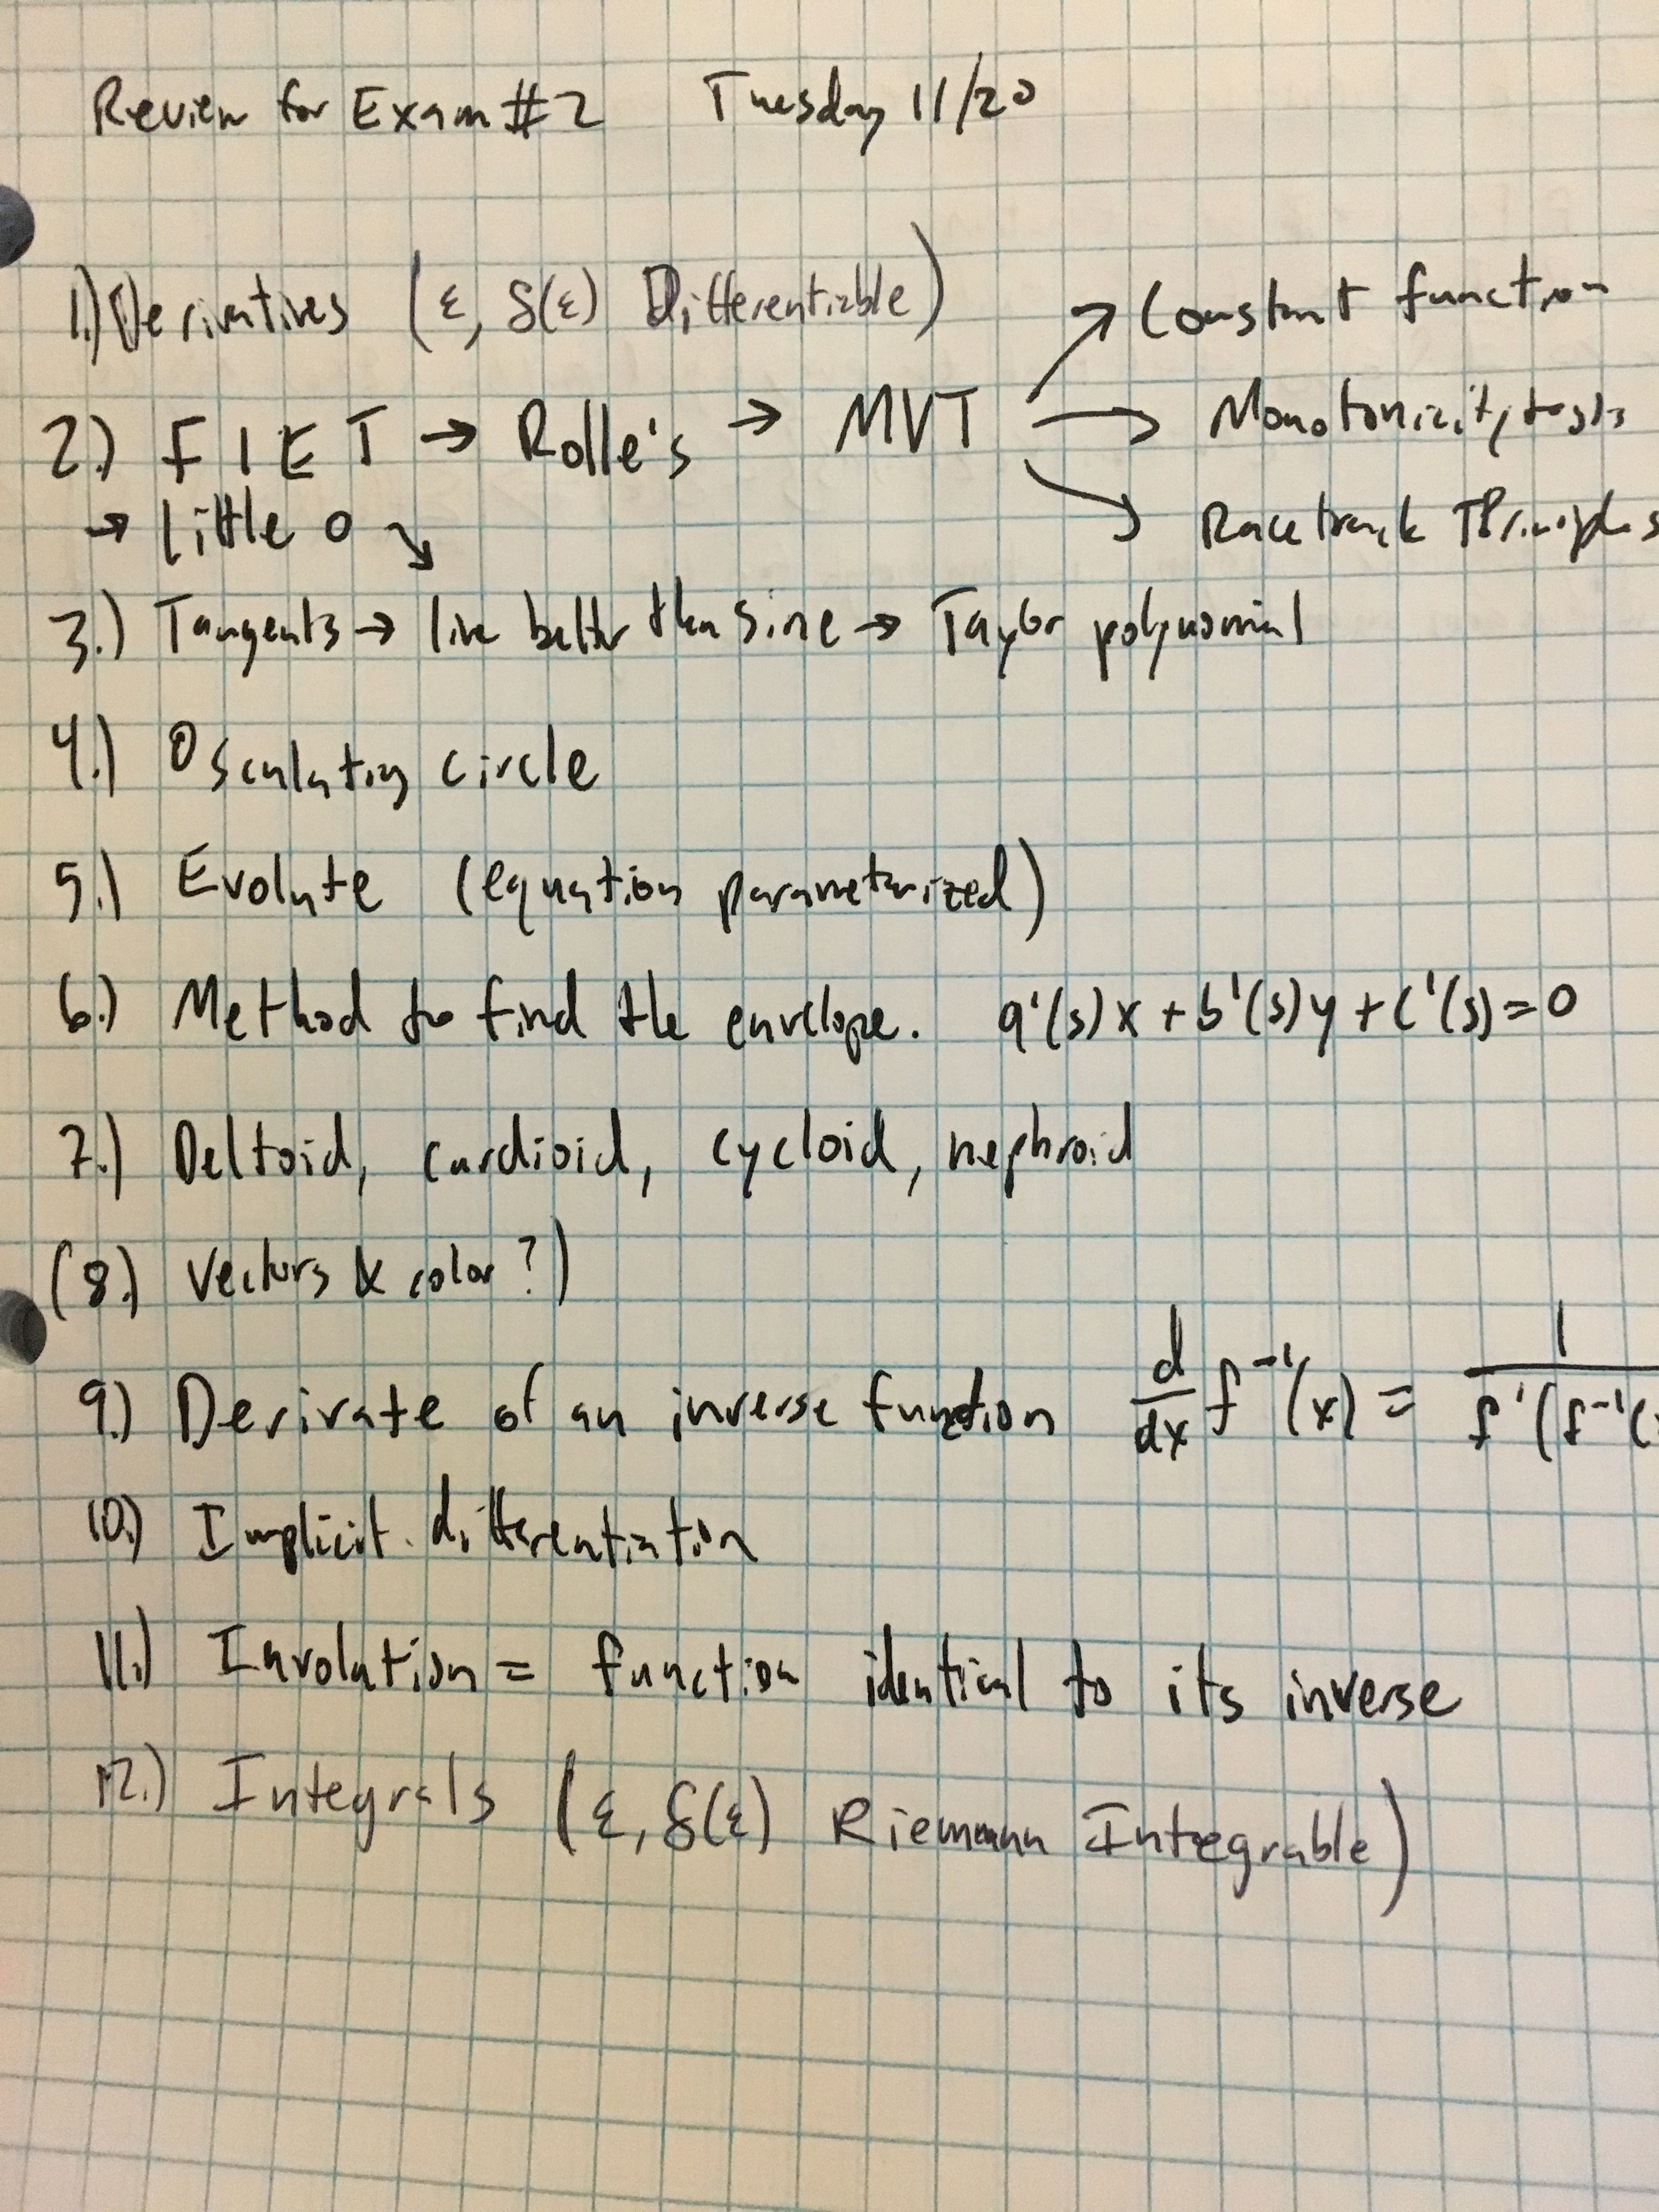 Review for Exam #2 Tuesday 11/20
1.) Derivatives (ε, δ(ε) Differentiable)
→ Constant function
2.) F I E T → Rolle's → MVT → Monotonicity tests
→ Racetrack Principles
→ little o ↘
3.) Tangents → line better than sine → Taylor polynomial
4.) Osculating circle
5.) Evolute (equation parameterized)
6.) Method to find the envelope. a'(s)x + b'(s)y + c'(s) = 0
7.) Deltoid, cardioid, cycloid, nephroid
(8.) Vectors & color?)
9.) Derivate of an inverse function d/dx f⁻¹(x) = 1/f'(f⁻¹(
10.) Implicit differentiation
11.) Involution = function identical to its inverse
12.) Integrals (ε, δ(ε) Riemann Integrable)